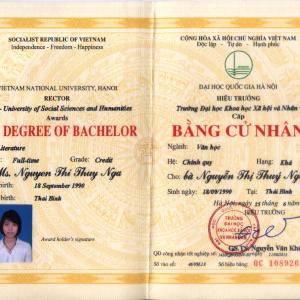 SOCIALIST REPUBLIC OF VIETNAM
Independence - Freedom - Happiness
VIETNAM NATIONAL UNIVERSITY, HANOI
RECTOR
- University of Social Sciences and Humanities
Awards
DEGREE OF BACHELOR
Literature
Full-time Grade: Credit
Ms. Nguyen Thi Thuy Nga
18 September 1990
Thai Binh
Award holder's signature:
CỘNG HÒA XÃ HỘI CHỦ NGHĨA VIỆT NAM
Độc lập - Tự do - Hạnh phúc
ĐẠI HỌC QUỐC GIA HÀ NỘI
HIỆU TRƯỞNG
Trường Đại học Khoa học Xã hội và Nhân
Cấp
BẰNG CỬ NHÂN
Ngành: Văn học
Hệ: Chính quy Hạng: Khá
Cho: bà Nguyễn Thị Thuý
Sinh ngày: 18/09/1990 Tại: Thái Bình
Hà Nội
HIỆU TRƯỞNG
TRƯỜNG
ĐẠI HỌC
GS.TS. Nguyễn Văn
QĐ công nhận tốt nghiệp số:
Số vào sổ: Số hiệu bằng: QC 108926